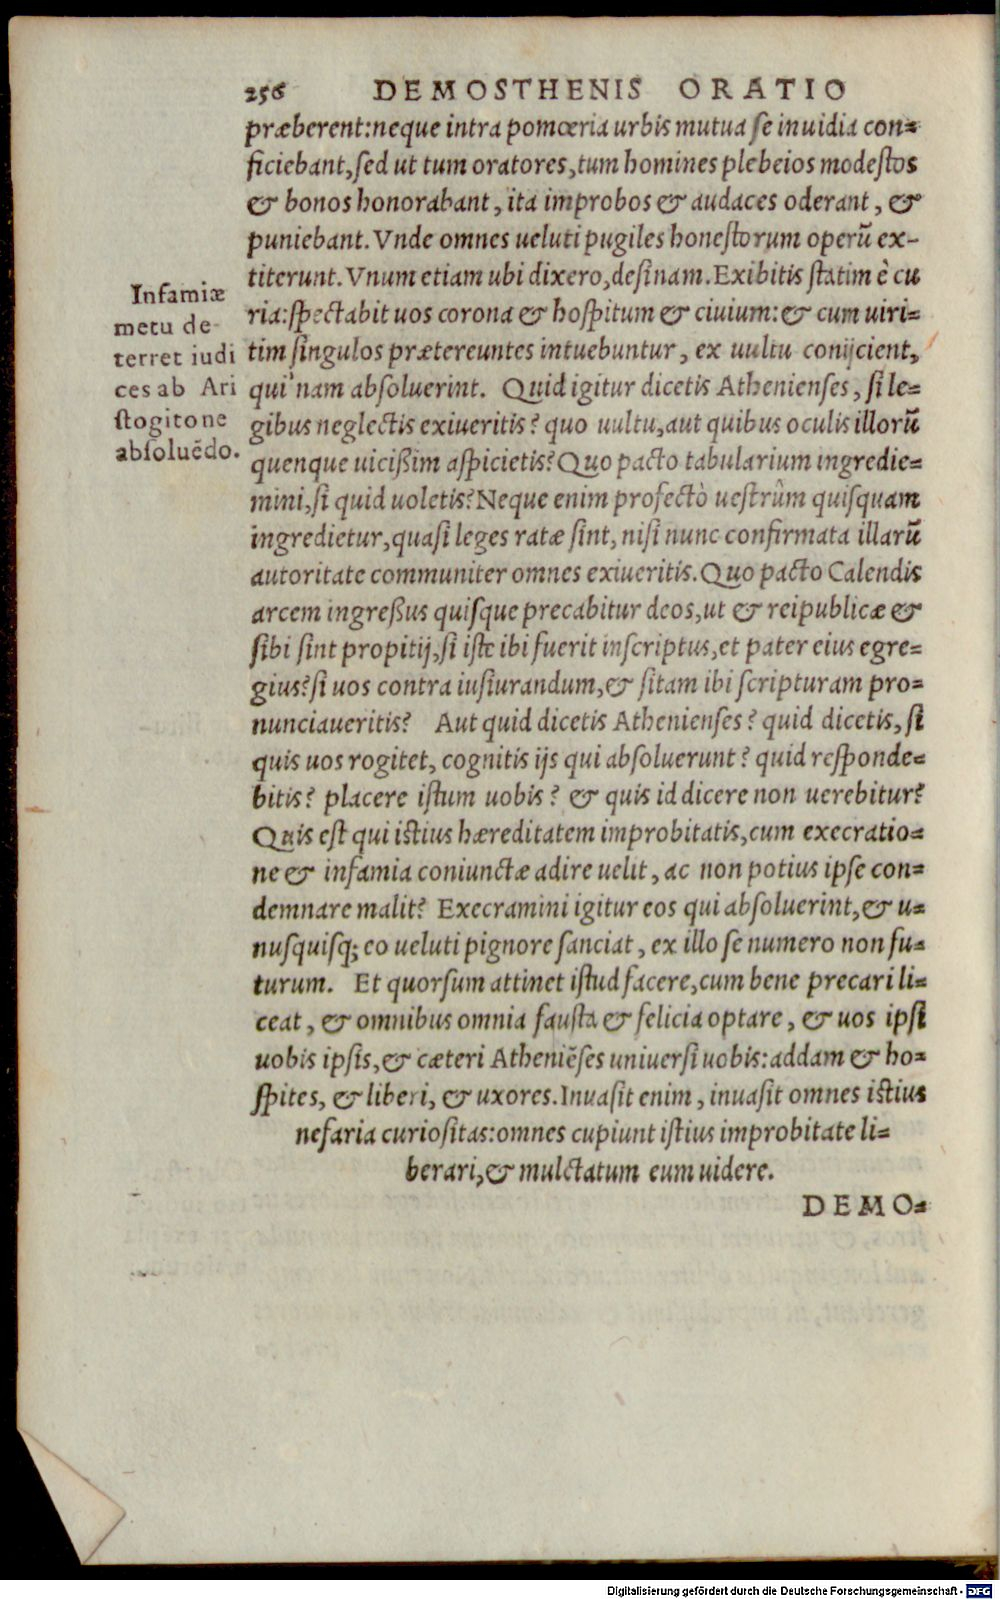 256 DEMOSTHENIS ORATIO
præberent: neque intra pomœria urbis mutua se inuidia con=
ficiebant, sed ut tum oratores, tum homines plebeios modestos
& bonos honorabant, ita improbos & audaces oderant, &
puniebant. Vnde omnes ueluti pugiles honestorum operũ ex-
titerunt. Vnum etiam ubi dixero, desinam. Exibitis statim è cu
ria: spectabit uos corona & hospitum & ciuium: & cum uiri=
tim singulos prætereuntes intuebuntur, ex uultu conijcient,
qui'nam absoluerint. Quid igitur dicetis Athenienses, si le=
gibus neglectis exiueritis? quo uultu, aut quibus oculis illorũ
quenque uicißim aspicietis? Quo pacto tabularium ingredie=
mini, si quid uoletis? Neque enim profectò uestrûm quisquam
ingredietur, quasi leges ratæ sint, nisi nunc confirmata illarũ
autoritate communiter omnes exiueritis. Quo pacto Calendis
arcem ingreßus quisque precabitur deos, ut & reipublicæ &
sibi sint propitij, si iste ibi fuerit inscriptus, et pater eius egre=
gius? si uos contra iusiurandum, & sitam ibi scripturam pro=
nunciaueritis? Aut quid dicetis Athenienses? quid dicetis, si
quis uos rogitet, cognitis ijs qui absoluerunt? quid responde=
bitis? placere istum uobis? & quis id dicere non uerebitur?
Quis est qui istius hæreditatem improbitatis, cum execratio=
ne & infamia coniunctæ adire uelit, ac non potius ipse con=
demnare malit? Execramini igitur eos qui absoluerint, & u=
nusquisq; eo ueluti pignore sanciat, ex illo se numero non fu=
turum. Et quorsum attinet istud facere, cum bene precari li=
ceat, & omnibus omnia fausta & felicia optare, & uos ipsi
uobis ipsis, & cæteri Atheniẽses uniuersi uobis: addam & ho=
spites, & liberi, & uxores. Inuasit enim, inuasit omnes istius
nefaria curiositas: omnes cupiunt istius improbitate li=
berari, & mulctatum eum uidere.
DEMO=
Infamiæ
metu de-
terret iudi
ces ab Ari
stogitone
absoluẽdo.
Digitalisierung gefördert durch die Deutsche Forschungsgemeinschaft - DFG